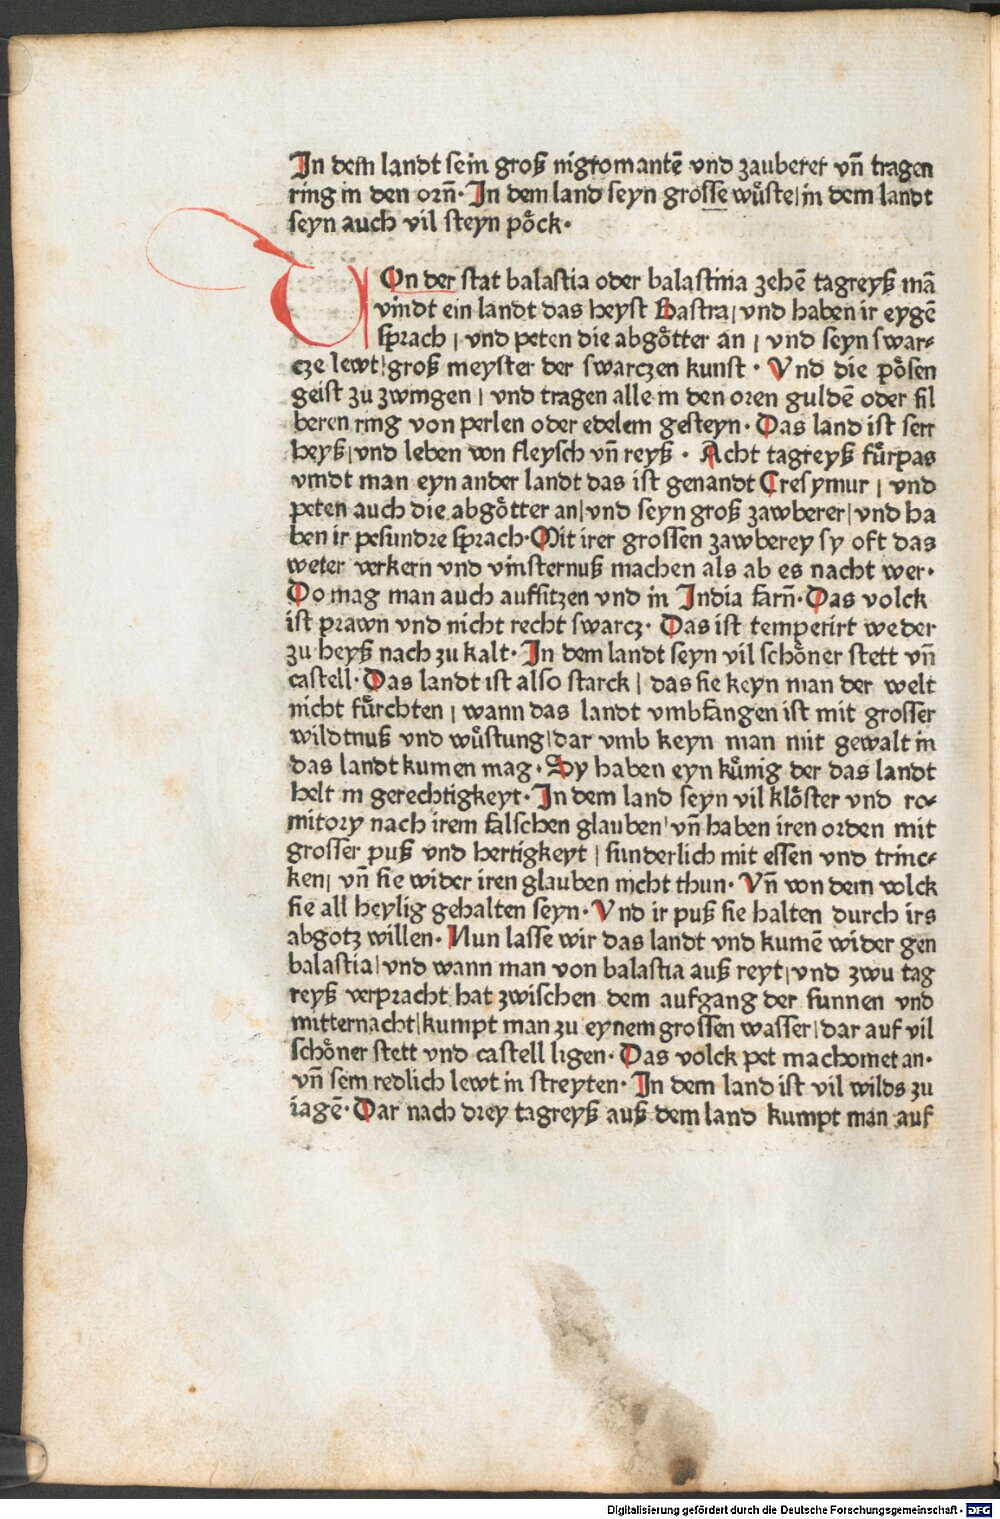 In dem landt sein groß nigromantē vnd zauberer vn̄ tragen
ring in den orn̄· In dem land seyn grosse wuͤste|in dem landt
seyn auch vil steyn poͤck·
VOn der stat balastia oder balastina zehē tagreyß mā
vindt ein landt das heyst Bastra|vnd haben ir eygē
sprach | vnd peten die abgoͤtter an | vnd seyn swar⸗
cze lewt|groß meyster der swarczen kunst · Vnd die poͤsen
geist zu zwingen | vnd tragen alle in den oren guldē oder sil
beren ring von perlen oder edelem gesteyn· Das land ist serr
heyß|vnd leben von fleysch vn̄ reyß · Acht tagreyß fuͤrpas
vindt man eyn ander landt das ist genandt Cresymur | vnd
peten auch die abgoͤtter an|vnd seyn groß zawberer|vnd ha
ben ir pesundre sprach·Mit irer grossen zawberey sy oft das
weter verkern vnd vinsternuß machen als ab es nacht wer·
Do mag man auch auffitzen vnd in India farn̄·Das volck
ist prawn vnd nicht recht swarcz· Das ist temperirt weder
zu heyß nach zu kalt· In dem landt seyn vil schoͤner stett vn̄
castell·Das landt ist also starck | das sie keyn man der welt
nicht fuͤrchten | wann das landt vmbfangen ist mit grosser
wildtnuß vnd wuͤstung|dar vmb keyn man mit gewalt in
das landt kumen mag·Sy haben eyn kuͤnig der das landt
helt in gerechtigkeyt·In dem land seyn vil kloͤster vnd ro⸗
mitory nach irem falschen glauben|vn̄ haben iren orden mit
grosser puß vnd hertigkeyt | sunderlich mit essen vnd trinc⸗
ken| vn̄ sie wider iren glauben nicht thun· Vn̄ von dem volck
sie all heylig gehalten seyn·Vnd ir puß sie halten durch irs
abgotz willen· Nun lasse wir das landt vnd kumē wider gen
balastia|vnd wann man von balastia auß reyt|vnd zwu tag
reyß verpracht hat zwischen dem aufgang der sunnen vnd
mitternacht|kumpt man zu eynem grossen wasser|dar auf vil
schoͤner stett vnd castell ligen· Das volck pet machomet an·
vn̄ sein redlich lewt in streyten· In dem land ist vil wilds zu
iagē·Dar nach drey tagreyß auß dem land kumpt man auf
Digitalisierung gefördert durch die Deutsche Forschungsgemeinschaft - DFG